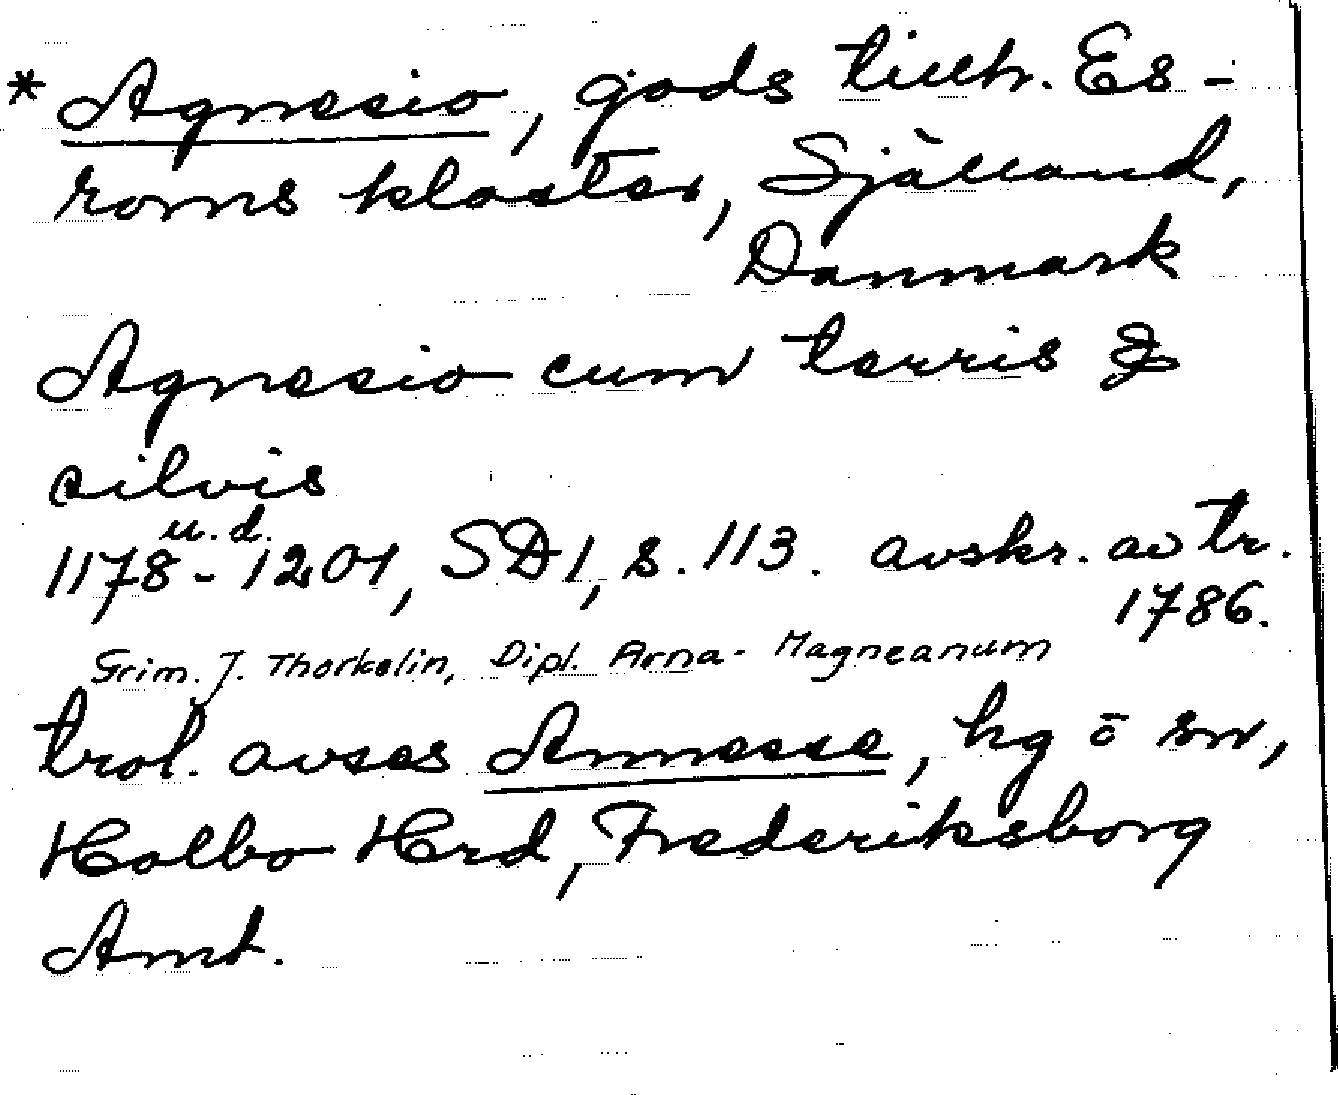 * Agnesio, gods tillh. Es-
roms kloster, Själland,
Danmark
Agnesio cum terris &
silvis
u.d.
1178-1201, SD1, s. 113. avskr. av tr.
1786.
Grim. J. Thorkelin, Dipl. Arna-Magneanum
trol. avses Annesse, hg o sn,
Holbo Hrd, Frederiksborg
Amt.